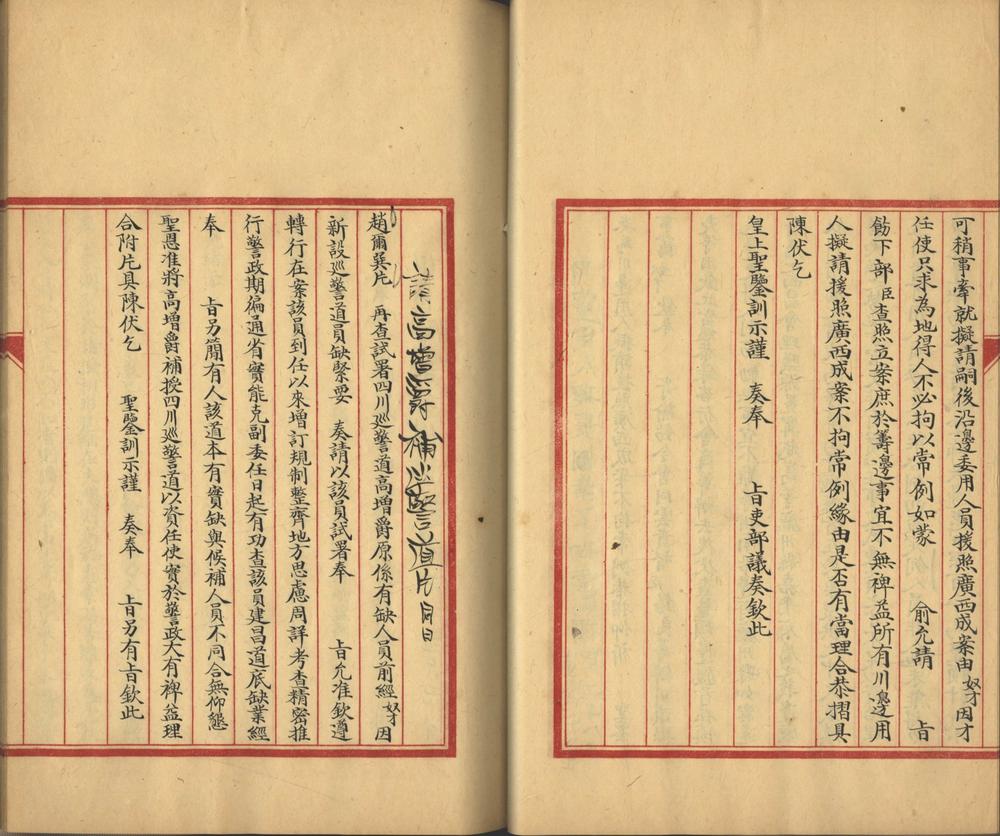 可稍事牽就擬請嗣後沿邊委用人員援照廣西成案由奴才因才
任使只求為地得人不必拘以常例如蒙 俞允請 旨
飭下部臣查照立案庶於籌邊事宜不無裨益所有川邊用
人擬請援照廣西成案不拘常例緣由是否有當理合恭摺具
陳伏乞
皇上聖鑒訓示謹 奏奉 旨吏部議奏欽此
請高增爵補巡警道片 同日
趙爾巽片 再查試署四川巡警道高增爵原係有缺人員前經奴才因
新設巡警道員缺緊要 奏請以該員試署奉 旨允准欽遵
轉行在案該員到任以來增訂規制整齊地方思慮周詳考查精密推
行警政期徧通省實能克副委任日起有功查該員建昌道底缺業經
奉 旨另簡有人該道本有實缺與候補人員不同合無仰懇
聖恩准將高增爵補授四川巡警道以資任使實於警政大有裨益理
合附片具陳伏乞 聖鑒訓示謹 奏奉 旨另有旨欽此